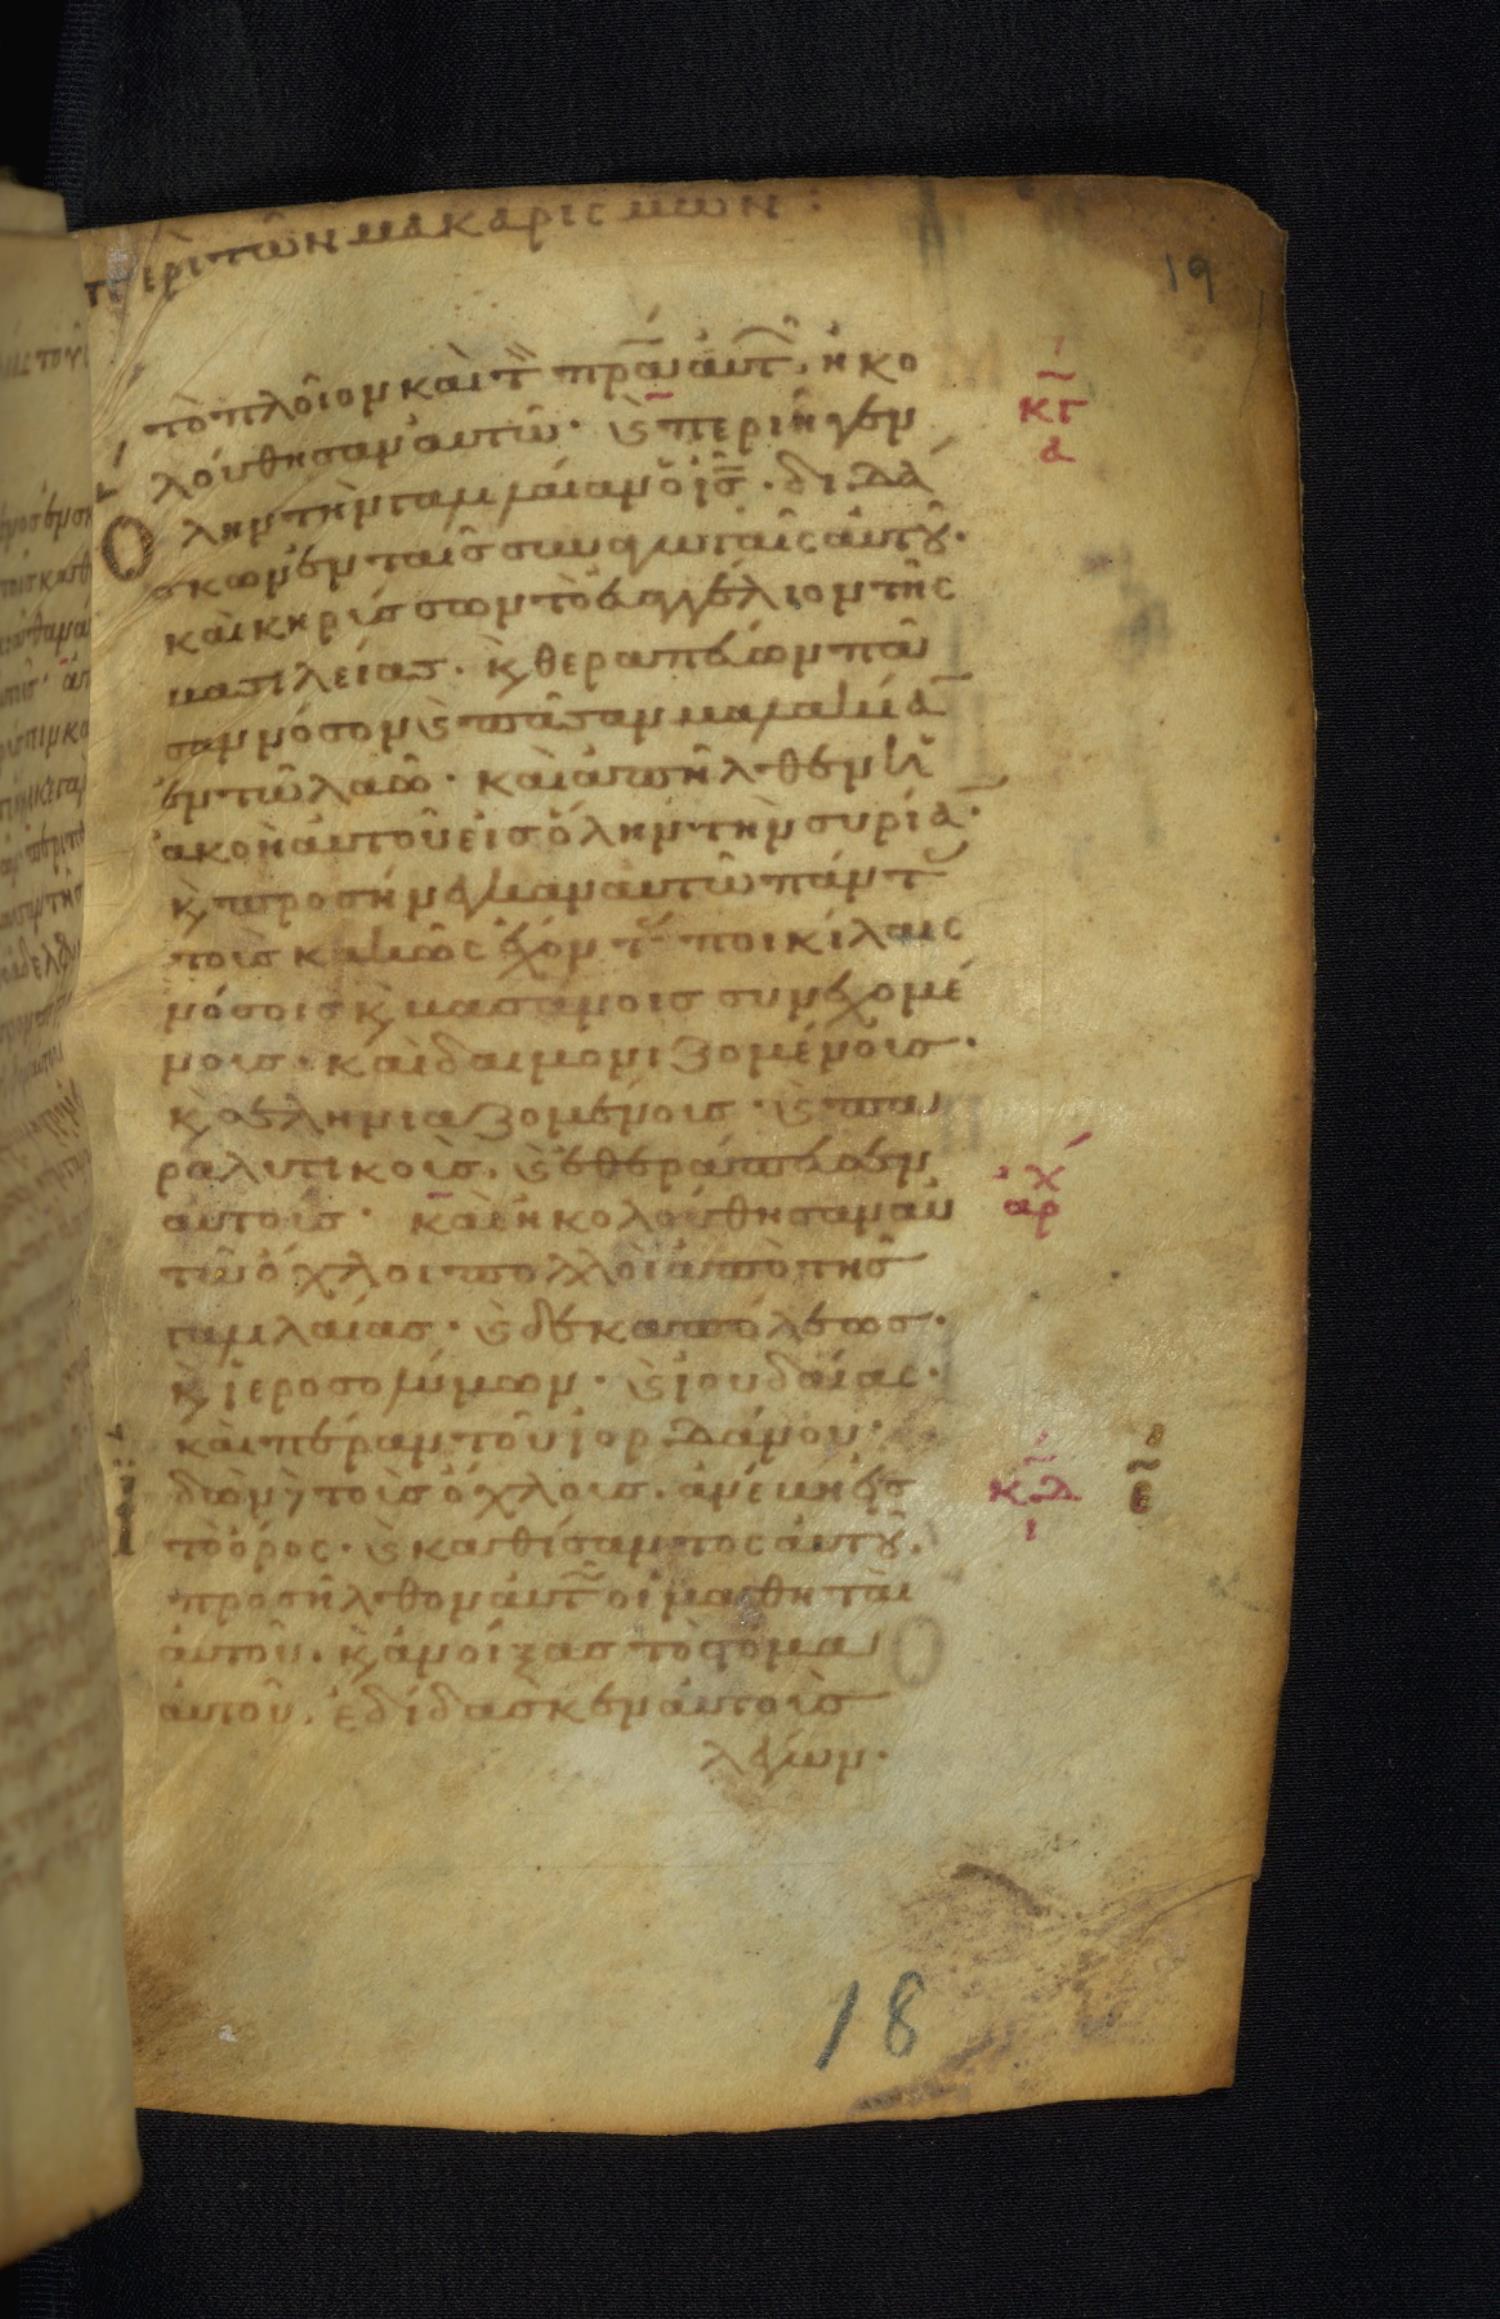 περὶ τῶν μακαρισμῶν :
19
τὸ πλοῖον καὶ τ πρα αυτ. ἠκο
λούθησαν αυτῶ · ϗ περιῆγεν
ὅλην τὴν γαλιλαίαν ὁ ις · διδά
σκων ἐν ταῖς συναγωγαῖς αὐτου ·
καὶ κηρύσσων τὸ εὐαγγέλιον τῆς
βασιλείας · ϗ θεραπεύων πᾶ
σαν νόσον ϗ πᾶσαν μαλακία
ἐν τῶ λαῶ · καὶ ἀπῆλθεν ἡ
ἀκοὴ αὐτοῦ εἰς ὅλην τὴν συρία ·
ϗ προσήνεγκαν αὐτῶ πάντ
τοὺς κακῶς ἔχοντ ποικίλαις
νόσοις ϗ βασάνοις συνεχομέ
νοις · καὶ δαιμονιζομένοις ·
ϗ σεληνιαζομένοις · ϗ πα
ραλυτικοὺς · ϗ ἐθεράπευσεν
αὐτούς · καὶ ἠκολούθησαν αὐ
τῶ ὄχλοι πολλοὶ ἀπὸ τῆς
γαλιλαίας · ϗ δεκαπόλεως ·
ϗ ἱεροσολύμων · ϗ ἰουδαίας ·
καὶ πέραν τοῦ ἰορδάνου ·
ἰδὼν τοὺς ὄχλους · ἀνέβη εἰς
τὸ ὄρος · ϗ καθίσαντος αὐτου ·
προσῆλθον αὐτ οἱ μαθηταὶ
αὐτοῦ · ϗ ἀνοίξας τὸ στόμα
αὐτοῦ · ἐδίδασκεν αὐτοὺς
λέγων ·
κγ
α
ἀχ
αρ
κδ
ε
18